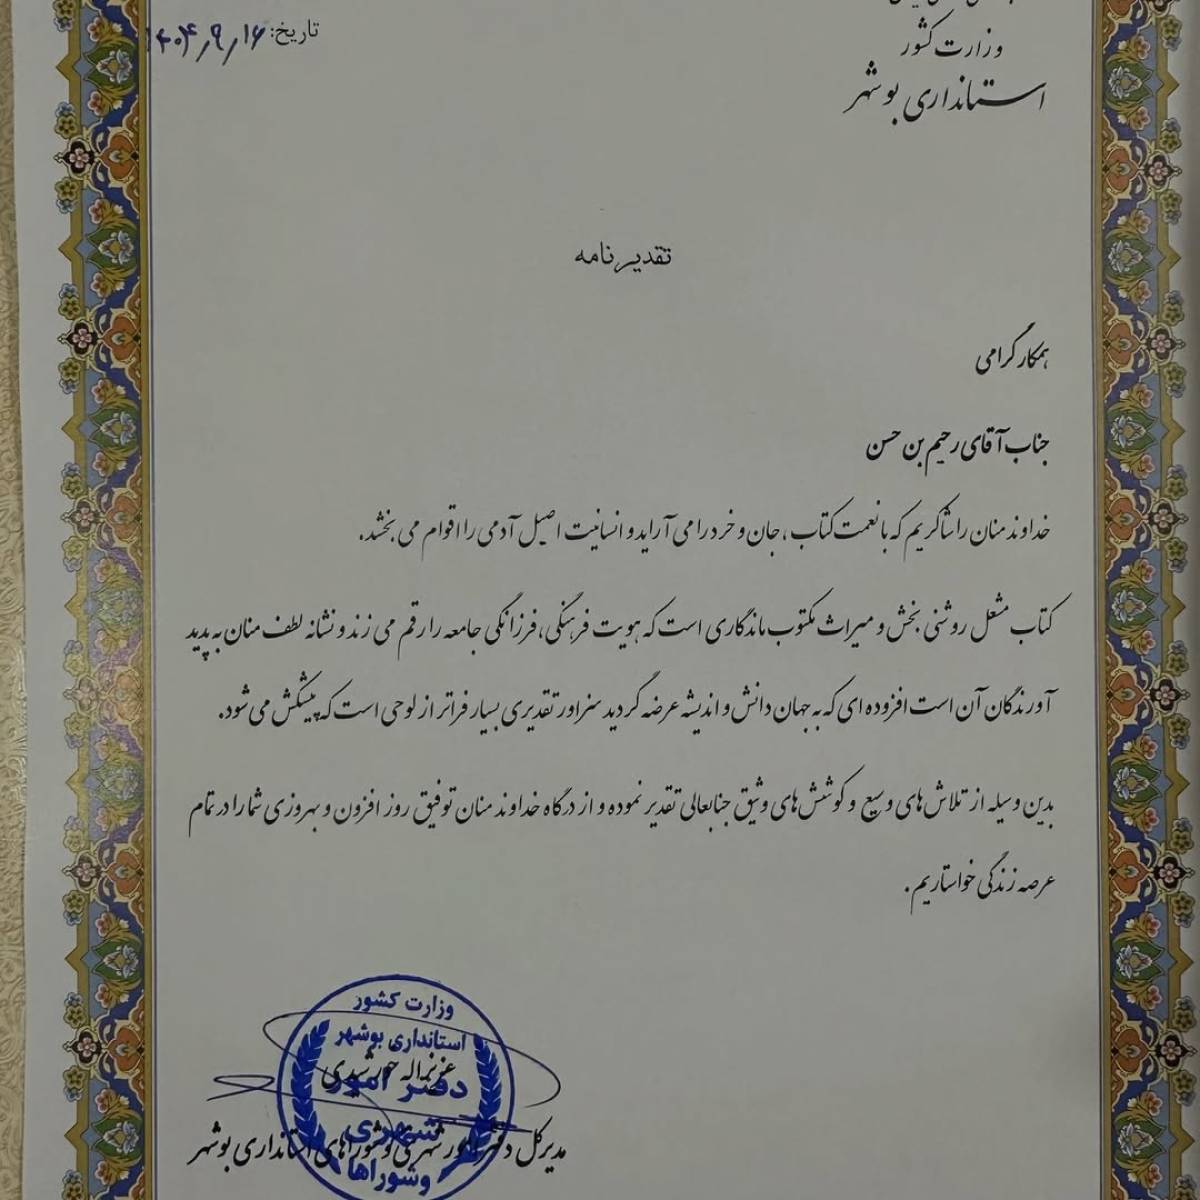 وزارت کشور
استانداری بوشهر
تاریخ: ۱۴۰۴٫۹٫۱۶
تقدیرنامه
همکار گرامی
جناب آقای رحیم بن حسن
خداوند منان را شاکریم که با نعمت کتاب ، جان و خرد را می آراید و انسانیت اصیل آدمی را اقوام می بخشد.
کتاب مشعل روشنی بخش و میراث مکتوب ماندگاری است که هویت فرهنگی، فرزانگی جامعه را رقم می زند و نشانه لطف منان به پدید
آورندگان آن است افزوده ای که به جهان دانش و اندیشه عرضه گردید سزاور تقدیری بسیار فراتر از لوحی است که پیشکش می شود.
بدین وسیله از تلاش های وسیع و کوشش های وثیق جنابعالی تقدیر نموده و از درگاه خداوند منان توفیق روز افزون و بهروزی شما را در تمام
عرصه زندگی خواستاریم.
وزارت کشور
استانداری بوشهر
عزیزاله خورشیدی
دفتر امور
شهری
مدیرکل دفتر امور شهری و شوراهای استانداری بوشهر
وشوراها